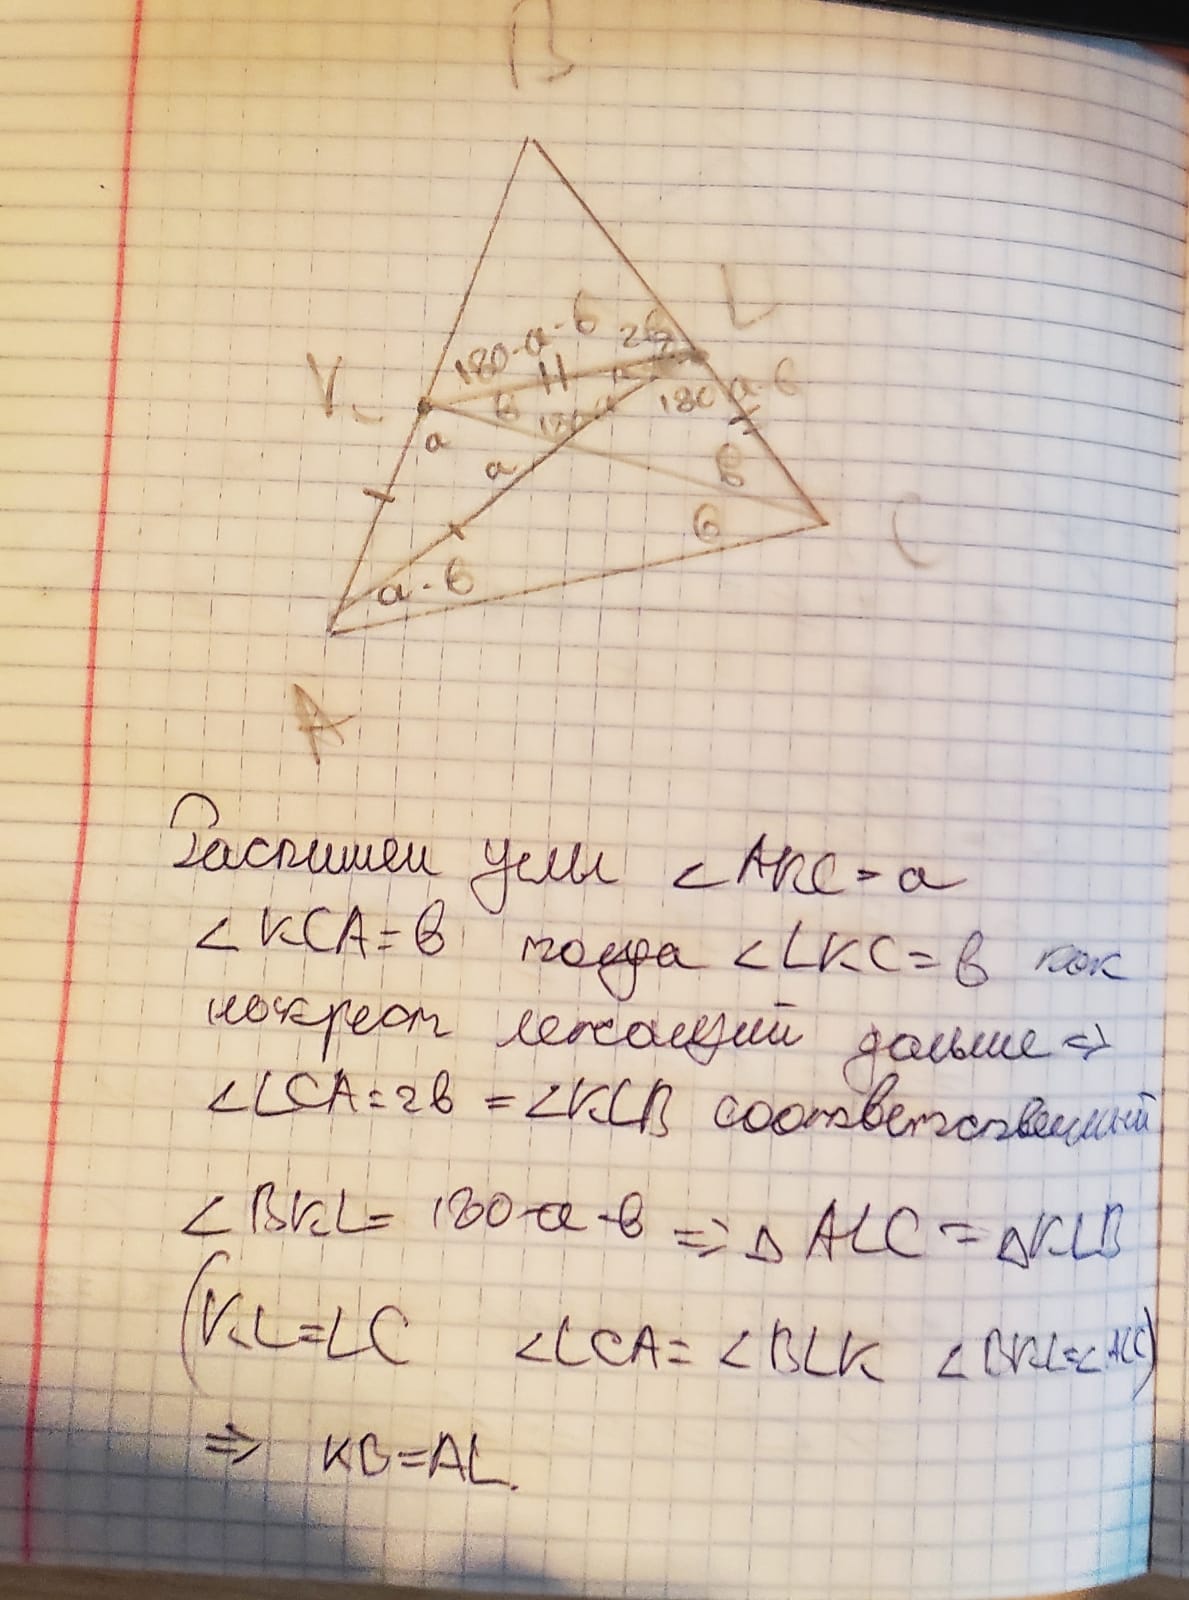 B
L
180-a-б 2б
K
б
180-a-б
a
a
б
C
б
a-б
A
Распишем углы ∠AKC=a
∠KCA=b тогда ∠LKC=b как
накрест лежащий дальше ⇒
∠LCA=2b = ∠KLB соответственный
∠BKL= 180-a-b ⇒ △ALC = △KLB
(KL=LC ∠LCA= ∠BLK ∠BKL=∠ALC)
⇒ KB=AL.